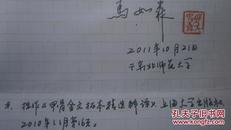 马如森
2011年10月21日
于东北师范大学
拙作《甲骨金文拓本精选释译》上海大学出版社
2010年11月第1版。